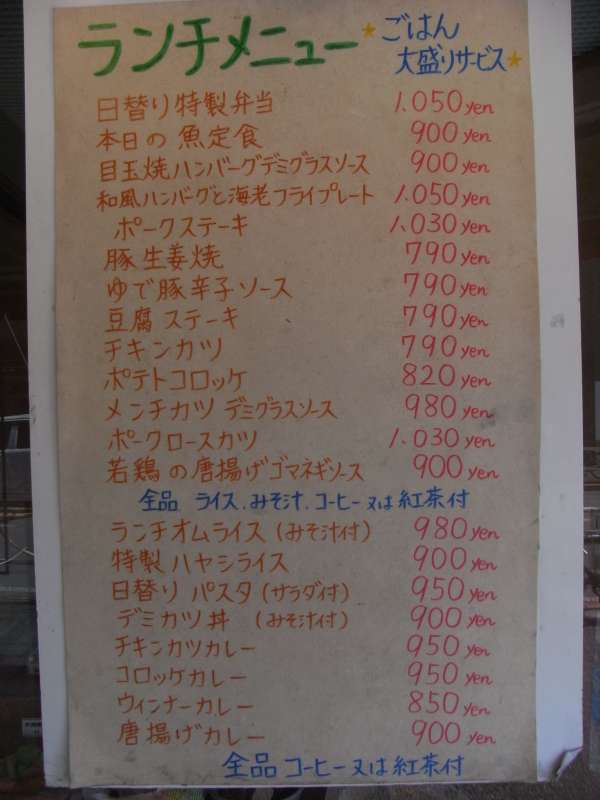 ランチメニュー ★ごはん
大盛りサービス★
日替り特製弁当 1.050yen
本日の魚定食 900yen
目玉焼ハンバーグデミグラスソース 900yen
和風ハンバーグと海老フライプレート 1.050yen
ポークステーキ 1.030yen
豚生姜焼 790yen
ゆで豚辛子ソース 790yen
豆腐ステーキ 790yen
チキンカツ 790yen
ポテトコロッケ 820yen
メンチカツデミグラスソース 980yen
ポークロースカツ 1.030yen
若鶏の唐揚げゴマネギソース 900yen
全品 ライス.みそ汁.コーヒー又は紅茶付
ランチオムライス(みそ汁付) 980yen
特製ハヤシライス 900yen
日替りパスタ(サラダ付) 950yen
デミカツ丼 (みそ汁付) 900yen
チキンカツカレー 950yen
コロッケカレー 950yen
ウィンナーカレー 850yen
唐揚げカレー 900yen
全品コーヒー又は紅茶付